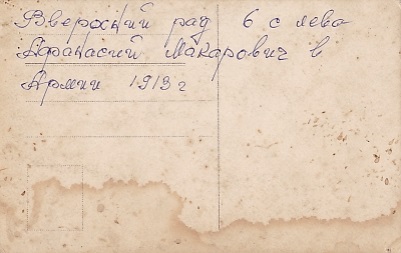 Вверюхний ряд 6 с лева
Афанасий Макарович в
Армии 1913 г